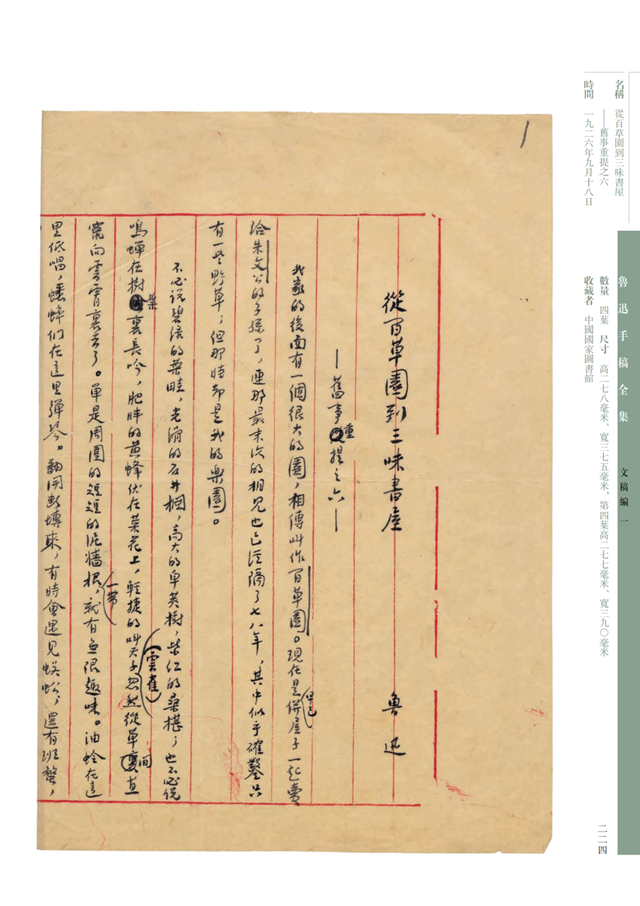 魯迅手稿全集 文稿編 一
名稱 從百草園到三味書屋
——舊事重提之六
時間 一九二六年九月十八日
數量 四葉 尺寸 高二七八毫米、寬三七五毫米,第四葉高二七七毫米、寬三九〇毫米
收藏者 中國國家圖書館
二二四
1
從百草園到三味書屋 魯迅
—舊事重提之六—
我家的後面有一個很大的園,相傳叫作百草園。現在是早已併屋子一起賣
給朱文公的子孫了,連那最末次的相見也已經隔了七八年,其中似乎確鑿只
有一些野草;但那時却是我的樂園。
不必说碧綠的菜畦,光滑的石井欄,高大的皁莢樹,紫红的桑椹;也不必说
鳴蟬在樹葉裏長吟,肥胖的黃蜂伏在菜花上,輕捷的叫天子(雲雀)忽然從草間直
竄向雲霄裏去了。單是周圍的短短的泥牆根一帶,就有無限趣味。油蛉在這
里低唱,蟋蟀們在這里彈琴。翻開斷磚來,有時會遇見蜈蚣;還有斑蝥,